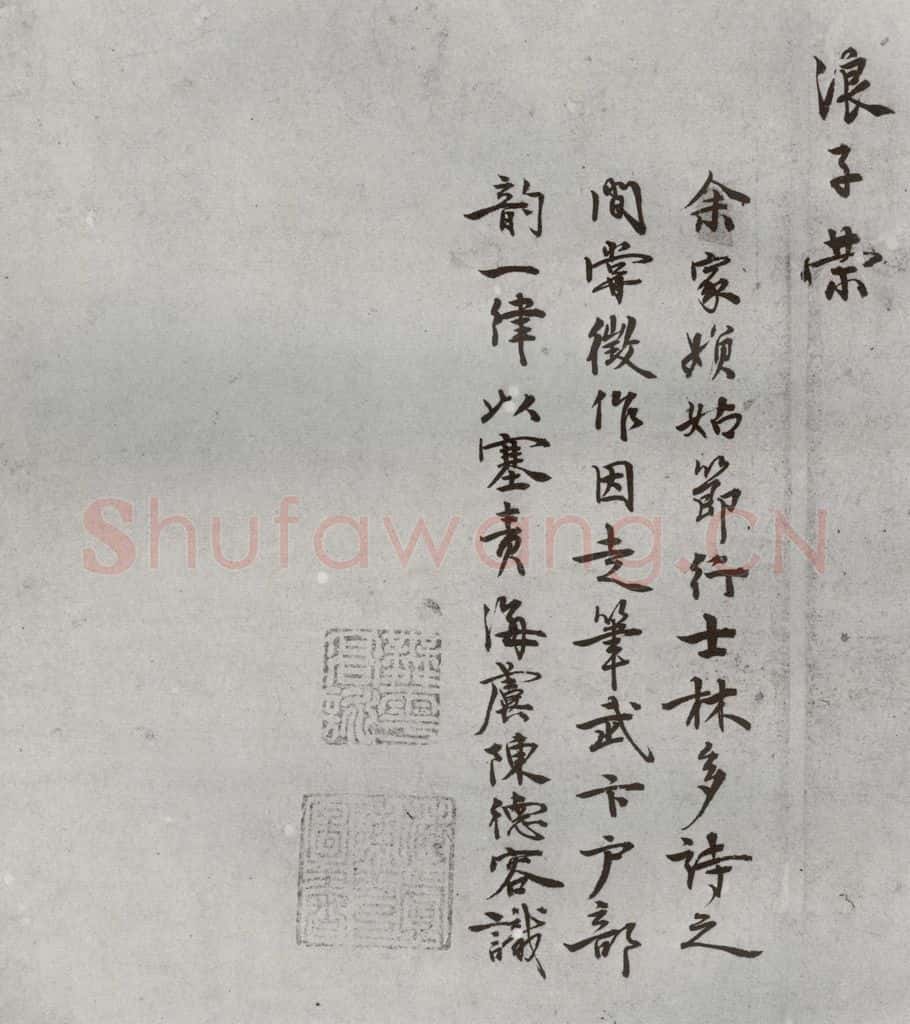 浪子榮
余家嬪姑節行士林多詩之
間嘗徵作因走筆武卞户部
韵一律以塞責海虞陳德容識
Shufawang.CN